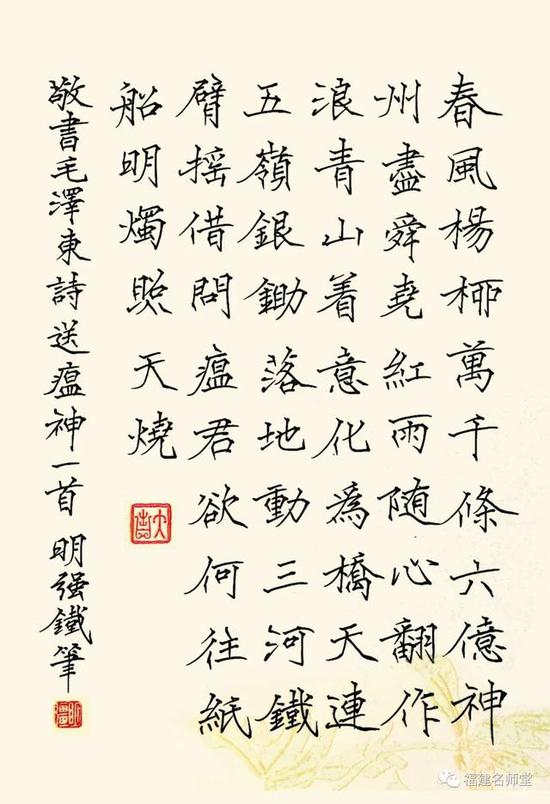 春風楊栁萬千條六億神
州盡舜堯紅雨随心翻作
浪青山着意化為橋天連
五嶺銀鋤落地動三河鐵
臂摇借問瘟君欲何往紙
船明燭照天燒
敬書毛澤東詩送瘟神一首 明强鐵筆
福建名师堂